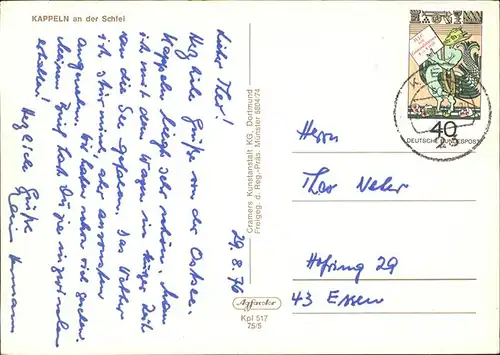 KAPPELN an der Schlei
Lieber Theo!
Herzliche Grüße von der Ostsee.
Kappeln liegt sehr schön. Man
ist mit dem Wagen in kurzer Zeit
an die See gefahren. Das Wetter
ist stürmisch, aber ansonsten
angenehm. Wir haben schon viel gesehen.
Meinen Brief hast Du ja inzwischen
erhalten!
Herzliche Grüße
Hermann
29.8.76
Cramers Kunstanstalt KG, Dortmund
Freigeg. d. Reg.-Präs. Münster 5804/74
Agfacolor
Kpl 517
75/5
40
DEUTSCHE BUNDESPOST
Herrn
Theo
Hofring 29
43 Essen